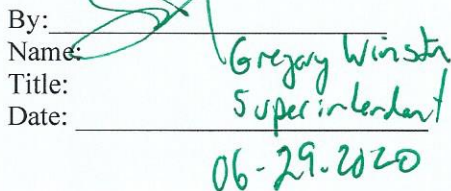 By:
Name: Gregory Winston
Title: Superintendent
Date:
06-29-2020